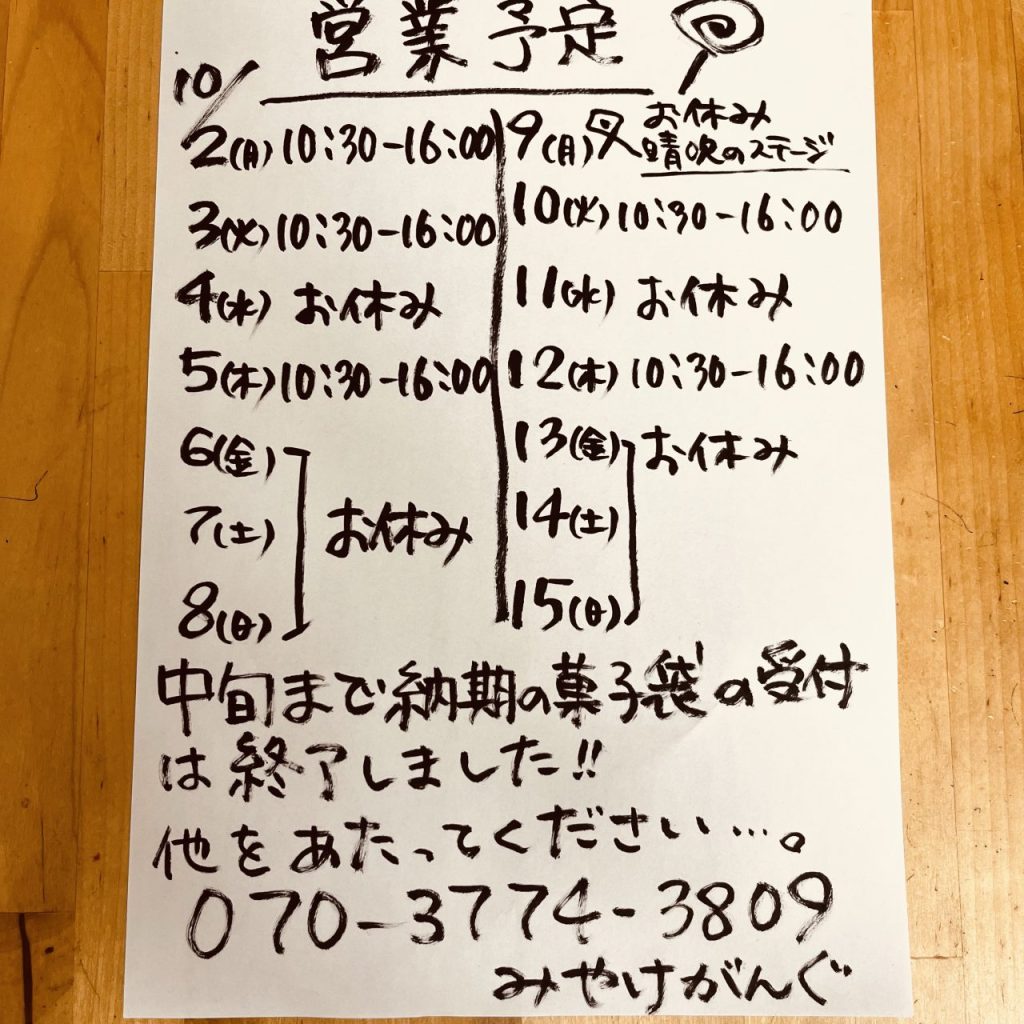 営業予定
10/
2(月)10:30-16:00
3(火)10:30-16:00
4(水)お休み
5(木)10:30-16:00
6(金)
7(土)お休み
8(日)
9(月)祝お休み
晴れのステージ
10(火)10:30-16:00
11(水)お休み
12(木)10:30-16:00
13(金)お休み
14(土)
15(日)
中旬まで納期の菓子袋の受付
は終了しました!!
他をあたってください…。
070-3774-3809
みやけがんぐ